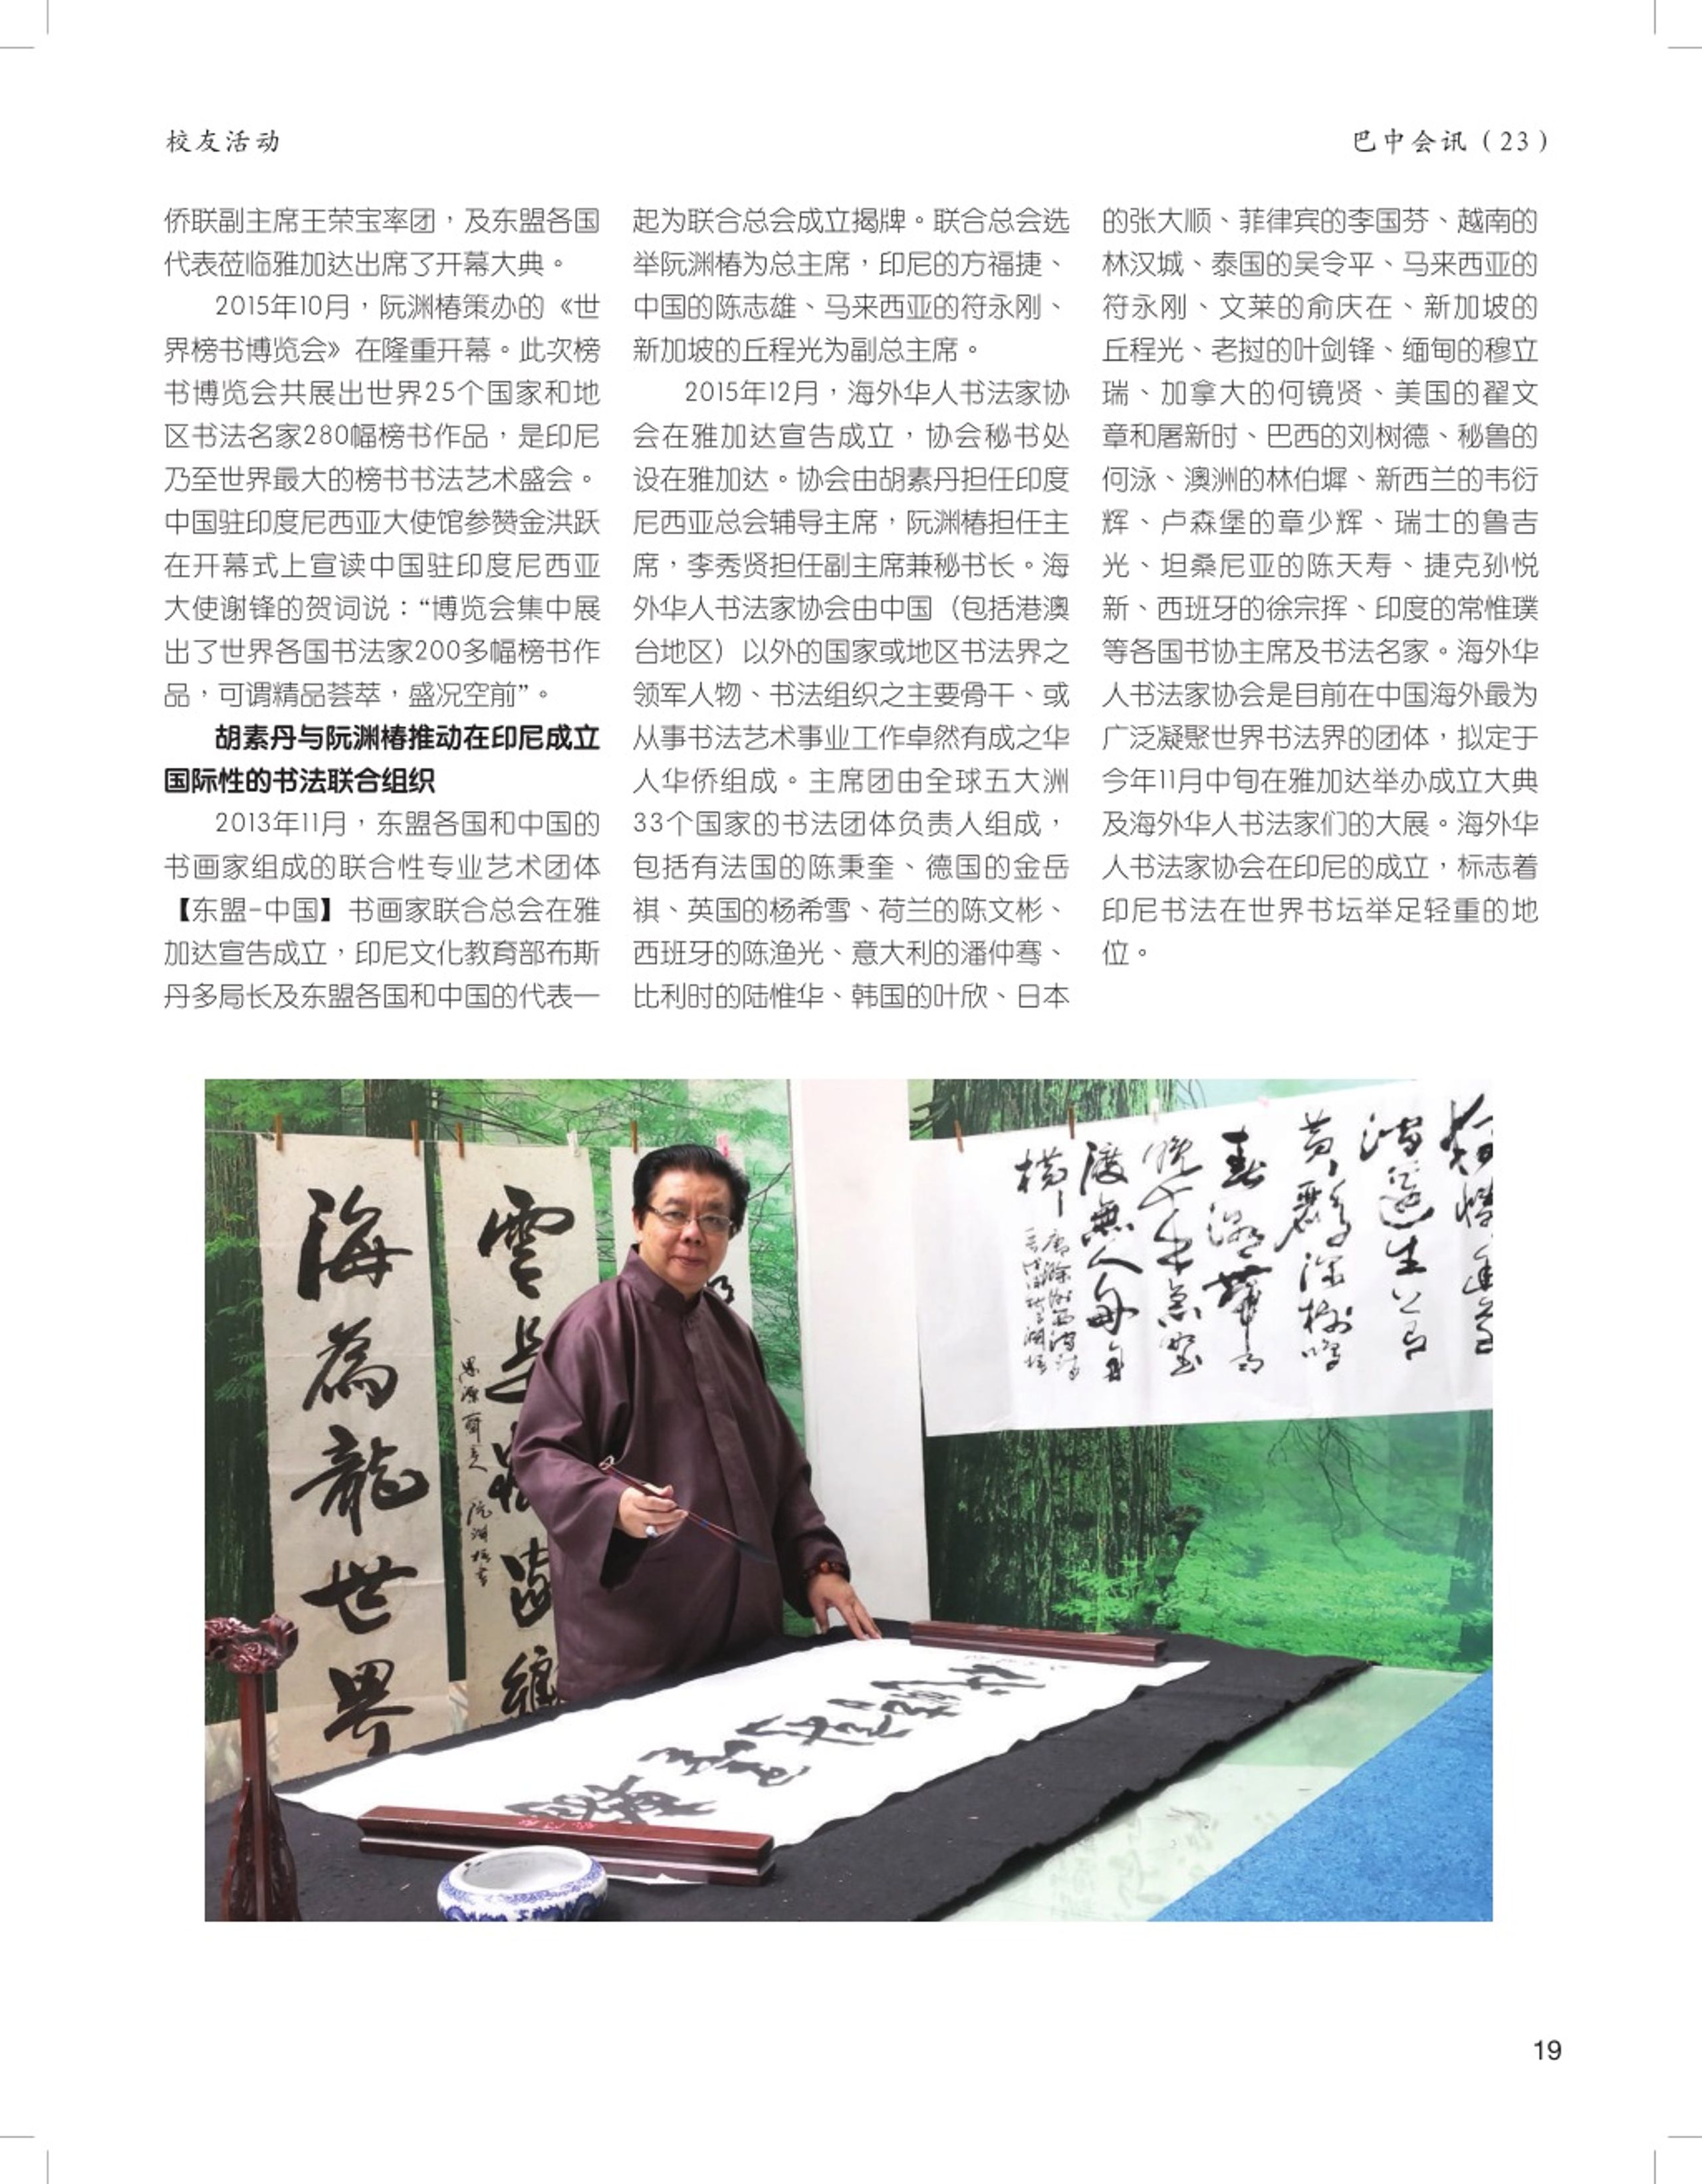 校友活动
巴中会讯（23）
侨联副主席王荣宝率团，及东盟各国
代表莅临雅加达出席了开幕大典。
2015年10月，阮渊椿策办的《世
界榜书博览会》在隆重开幕。此次榜
书博览会共展出世界25个国家和地
区书法名家280幅榜书作品，是印尼
乃至世界最大的榜书书法艺术盛会。
中国驻印度尼西亚大使馆参赞金洪跃
在开幕式上宣读中国驻印度尼西亚
大使谢锋的贺词说：“博览会集中展
出了世界各国书法家200多幅榜书作
品，可谓精品荟萃，盛况空前”。
胡素丹与阮渊椿推动在印尼成立
国际性的书法联合组织
2013年11月，东盟各国和中国的
书画家组成的联合性专业艺术团体
【东盟-中国】书画家联合总会在雅
加达宣告成立，印尼文化教育部布斯
丹多局长及东盟各国和中国的代表一
起为联合总会成立揭牌。联合总会选
举阮渊椿为总主席，印尼的方福捷、
中国的陈志雄、马来西亚的符永刚、
新加坡的丘程光为副总主席。
2015年12月，海外华人书法家协
会在雅加达宣告成立，协会秘书处
设在雅加达。协会由胡素丹担任印度
尼西亚总会辅导主席，阮渊椿担任主
席，李秀贤担任副主席兼秘书长。海
外华人书法家协会由中国（包括港澳
台地区）以外的国家或地区书法界之
领军人物、书法组织之主要骨干、或
从事书法艺术事业工作卓然有成之华
人华侨组成。主席团由全球五大洲
33个国家的书法团体负责人组成，
包括有法国的陈秉奎、德国的金岳
祺、英国的杨希雪、荷兰的陈文彬、
西班牙的陈渔光、意大利的潘仲骞、
比利时的陆惟华、韩国的叶欣、日本
的张大顺、菲律宾的李国芬、越南的
林汉城、泰国的吴令平、马来西亚的
符永刚、文莱的俞庆在、新加坡的
丘程光、老挝的叶剑锋、缅甸的穆立
瑞、加拿大的何镜贤、美国的翟文
章和屠新时、巴西的刘树德、秘鲁的
何泳、澳洲的林伯墀、新西兰的韦衍
辉、卢森堡的章少辉、瑞士的鲁吉
光、坦桑尼亚的陈天寿、捷克孙悦
新、西班牙的徐宗挥、印度的常惟璞
等各国书协主席及书法名家。海外华
人书法家协会是目前在中国海外最为
广泛凝聚世界书法界的团体，拟定于
今年11月中旬在雅加达举办成立大典
及海外华人书法家们的大展。海外华
人书法家协会在印尼的成立，标志着
印尼书法在世界书坛举足轻重的地
位。
海為龍世界
雲是
黄鸝深樹鳴
春潮帶雨
晚来急野
渡無人舟自
横
19